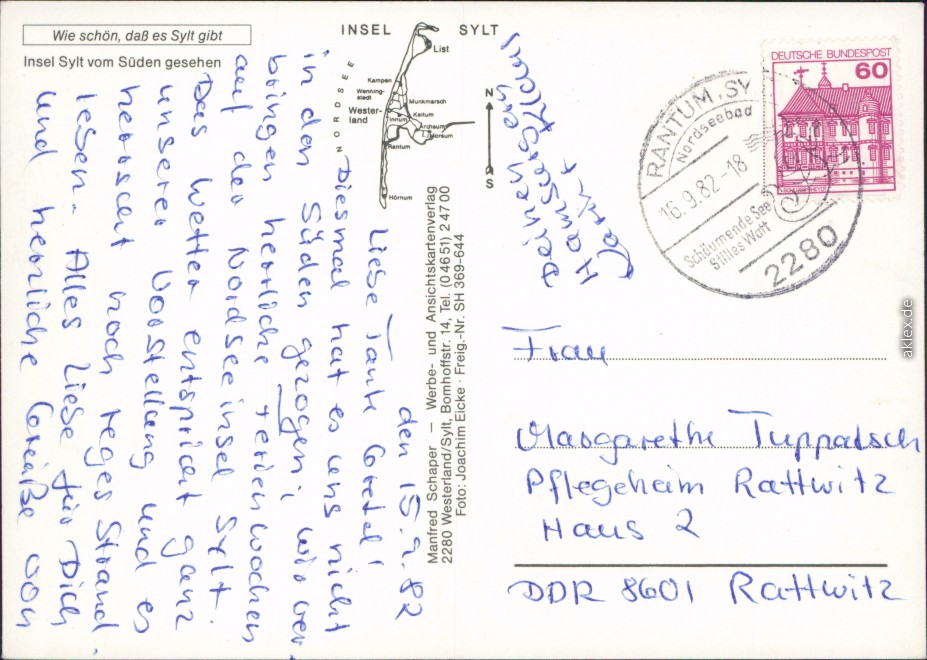 Wie schön, daß es Sylt gibt
Insel Sylt vom Süden gesehen
INSEL SYLT
NORDSEE
List
Kampen
Wenning-
stedt
Munkmarsch
Wester-
land
Tinnum
Keitum
Archsum
Morsum
Rantum
Hörnum
N
S
Manfred Schaper — Werbe- und Ansichtskartenverlag
2280 Westerland/Sylt, Bomhoffstr. 14, Tel. (0 46 51) 2 47 00
Foto: Joachim Eicke · Freig.-Nr. SH 369-644
den 15.9.82
Liebe Tante Gretel!
Diesmal hat es uns nicht
in den Süden gezogen; wir ver-
bringen herrliche Ferienwochen
auf der Nordseeinsel Sylt.
Das Wetter entspricht ganz
unserer Vorstellung und es
herrscht noch reges Strand
leben. Alles Liebe für Dich
und herzliche Grüße von
Deinen
Hans
DEUTSCHE BUNDESPOST
60
RANTUM, SY
Nordseebad
16.9.82-18
Schäumende See
Stilles Watt
2280
Frau
Margarethe Tuppatsch
Pflegeheim Rattwitz
Haus 2
DDR 8601 Rattwitz
aklex.de